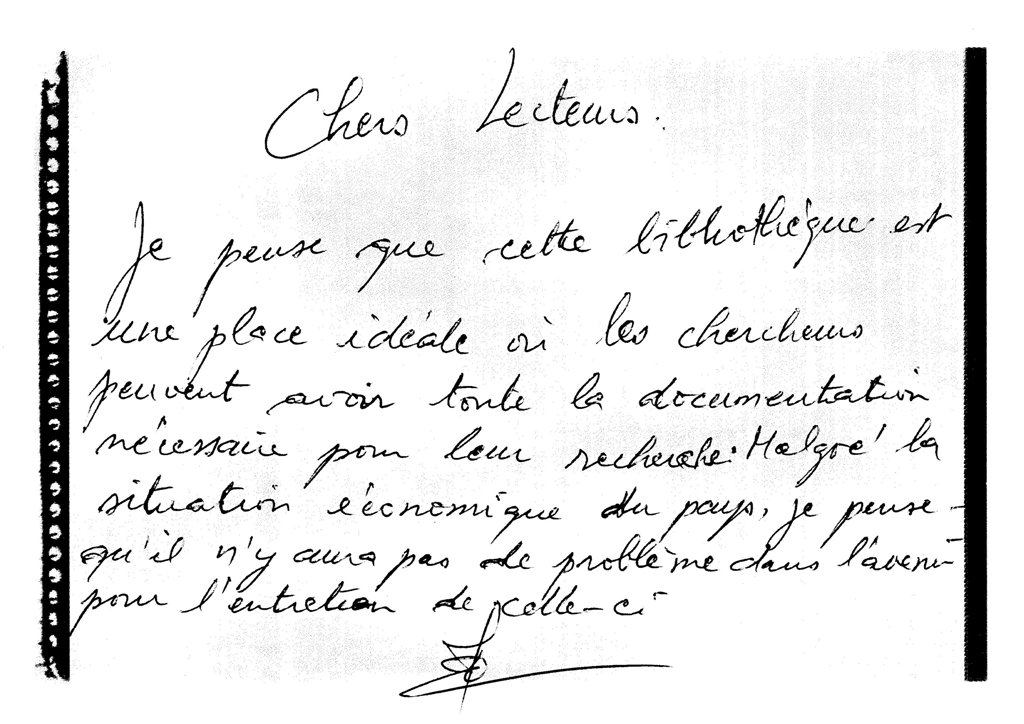 Chers Lecteurs.
Je pense que cette bibliothèque est
une place idéale où les chercheurs
peuvent avoir toute la documentation
nécessaire pour leur recherche. Malgré la
situation économique du pays, je pense
qu'il n'y aura pas de problème dans l'avenir
pour l'entretien de celle-ci